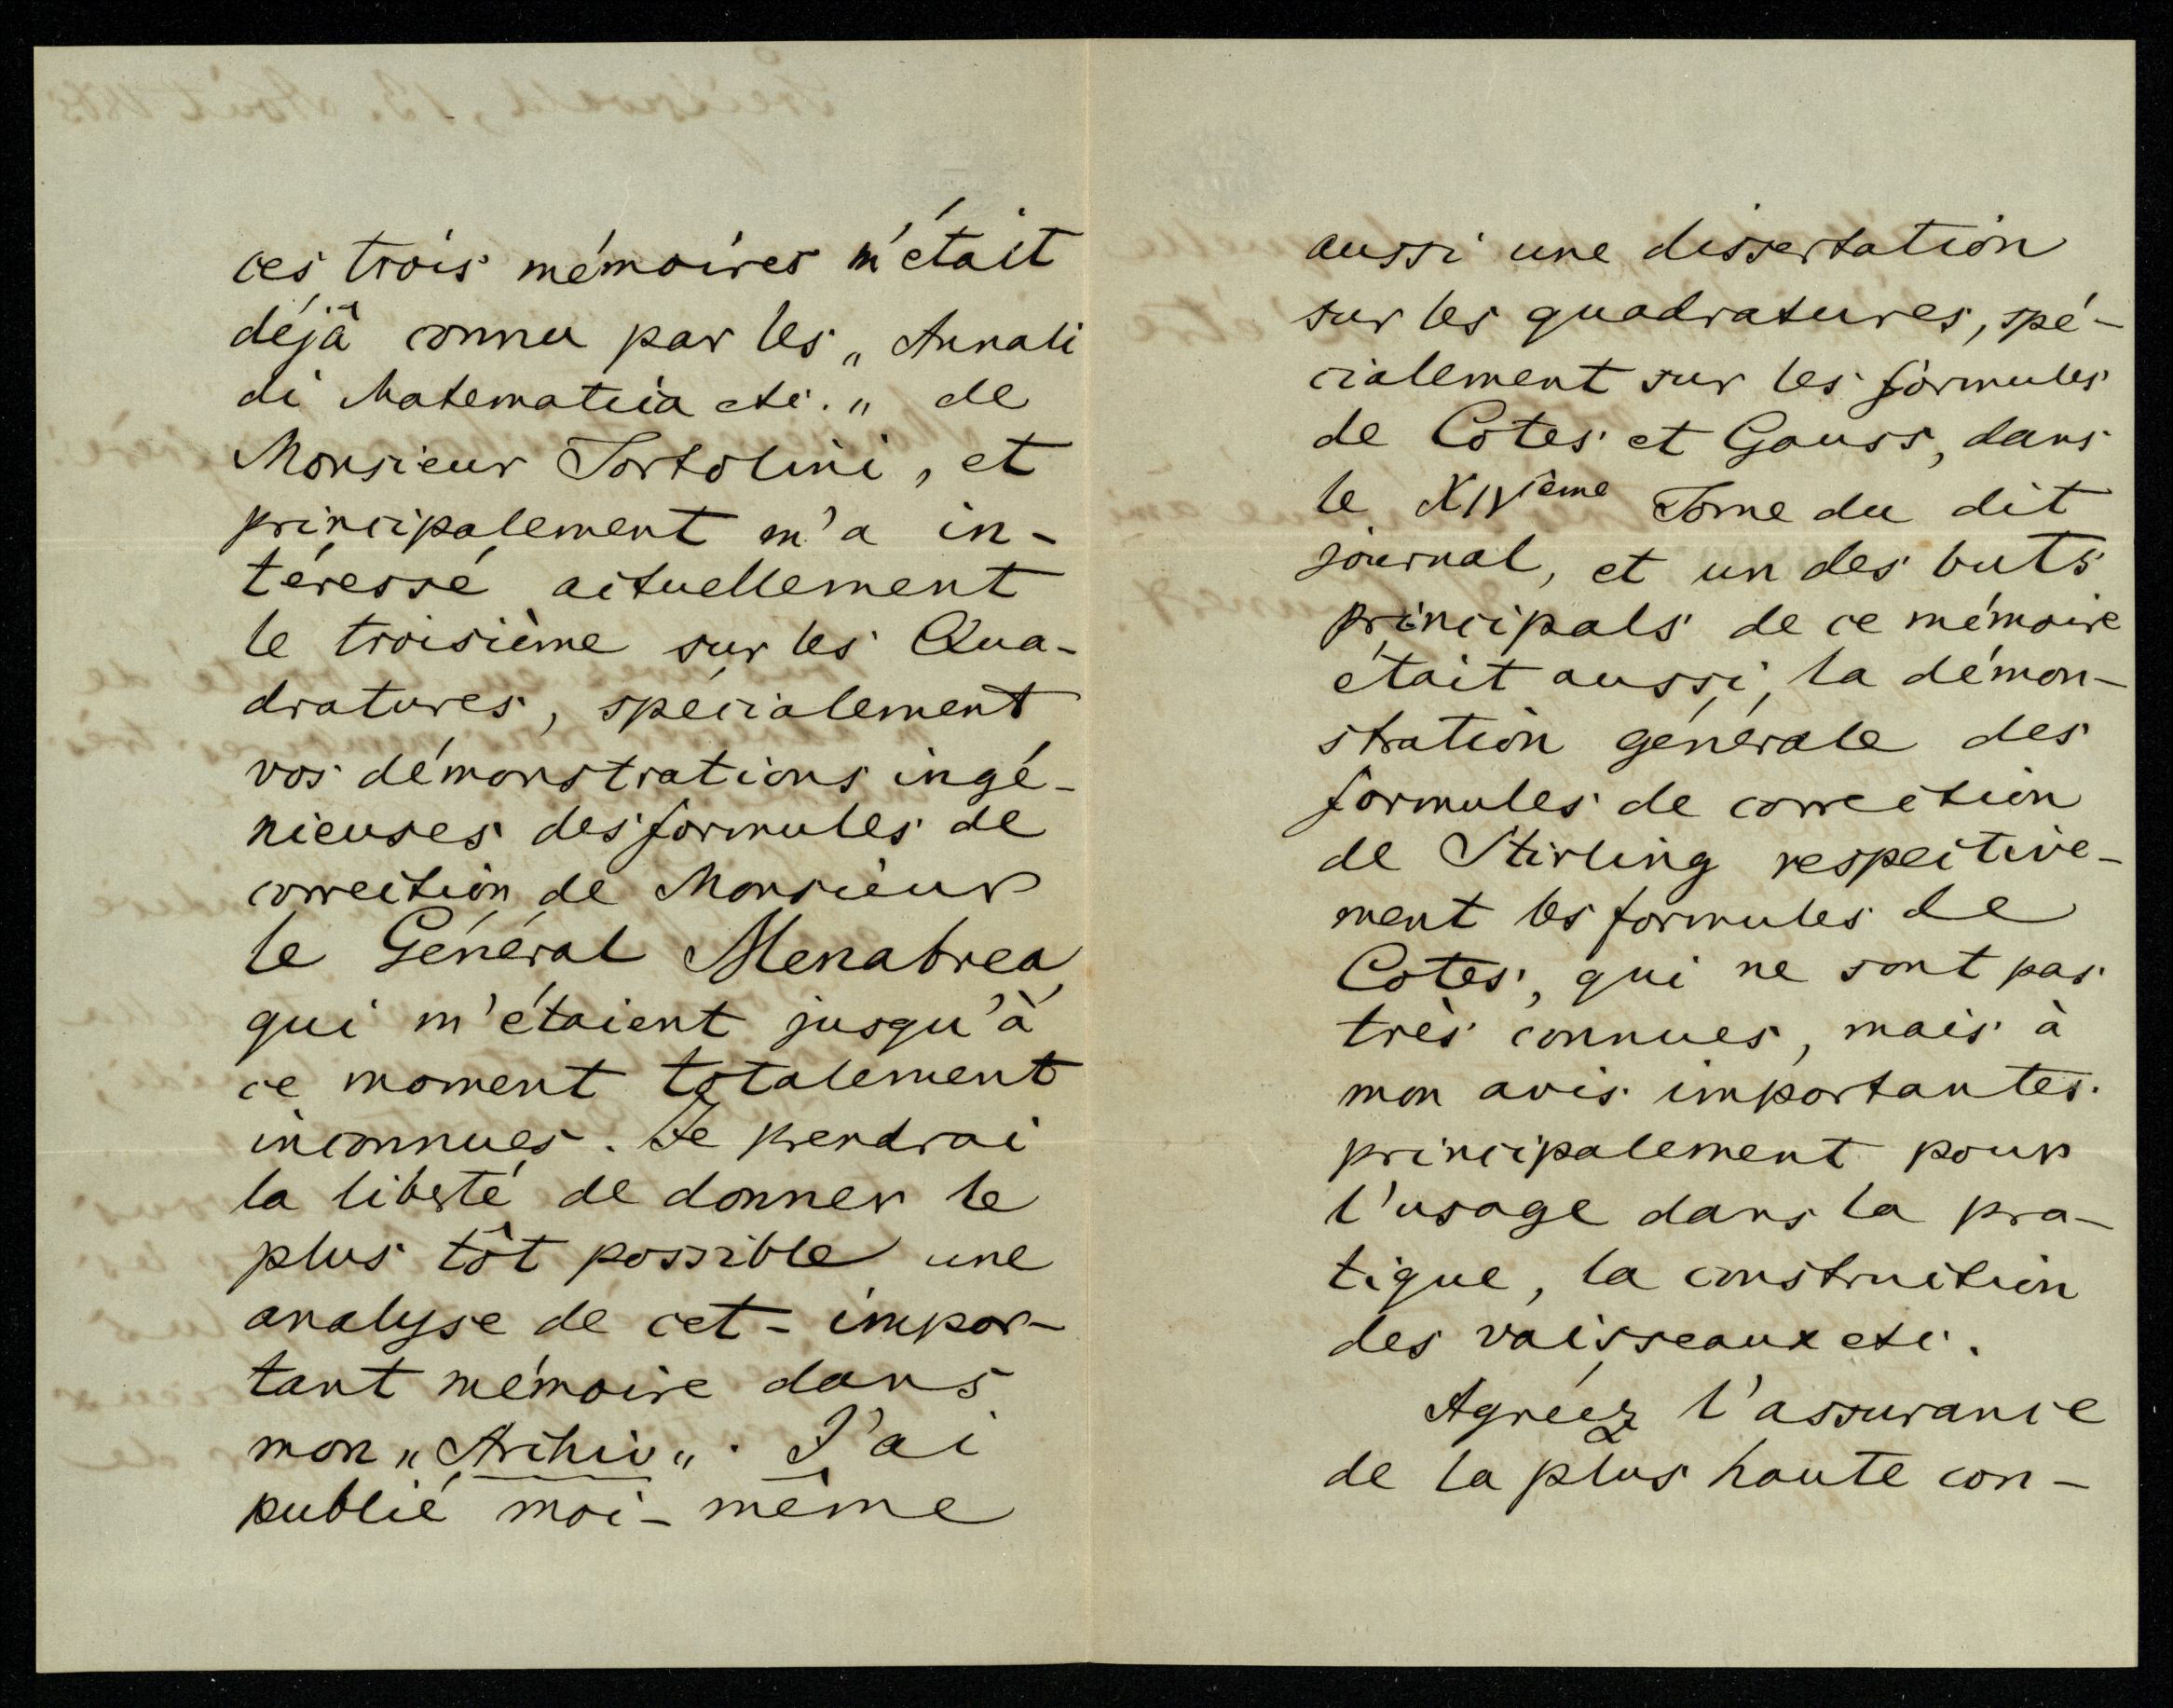 ces trois mémoires m'était
déjà connu par les „Annali
di Matematica etc.„ de
Monsieur Tortolini, et
principalement m'a in-
téressé actuellement
le troisième sur les Qua-
dratures, spécialement
vos démonstrations ingé-
nieuses des formules de
correction de Monsieur
le Général Menabrea
qui m'étaient jusqu'à
ce moment totalement
inconnues. Je prendrai
la liberté de donner le
plus tôt possible une
analyse de cet- impor-
tant mémoire dans
mon „Archiv„. J'ai
publié moi-même
aussi une dissertation
sur les quadratures, spé-
cialement sur les formules
de Cotes et Gauss, dans
le XIVième Tome du dit
journal, et un des buts
principals de ce mémoire
était aussi, la démon-
stration générale des
formules de correction
de Stirling respective-
ment les formules de
Cotes, qui ne sont pas
très connues, mais à
mon avis importantes
principalement pour
l'usage dans la pra-
tique, la construction
des vaisseaux etc.
Agréez l'assurance
de la plus haute con-